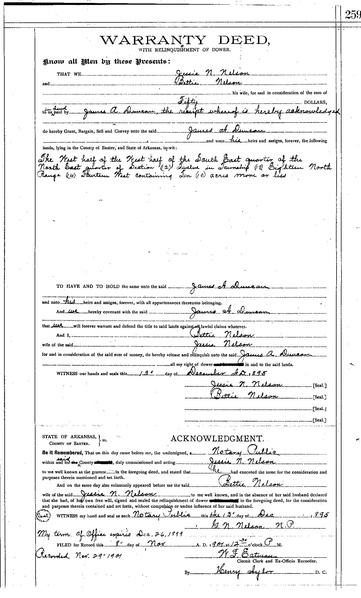 259
WARRANTY DEED,
WITH RELINQUISHMENT OF DOWER.
Know all Men by these Presents:
THAT WE Jessie N. Nelson
and Bettie Nelson
his wife, for and in consideration of the sum of
Fifty DOLLARS,
paid by James A. Duncan, the receipt whereof is hereby acknowledged
do hereby Grant, Bargain, Sell and Convey unto the said James A. Duncan
and unto his heirs and assigns, forever, the following
lands, lying in the County of Baxter, and State of Arkansas, to-wit:
The West half of the West half of the South East quarter of the
North East quarter of Section (12) Twelve in Township (18) Eighteen North
Range (14) Fourteen West containing Ten (10) acres more or less
TO HAVE AND TO HOLD the same unto the said James A. Duncan
and unto his heirs and assigns, forever, with all appurtenances thereunto belonging.
And we hereby covenant with the said James A. Duncan
that we will forever warrant and defend the title to said lands against all lawful claims whatever.
And I, Bettie Nelson
wife of the said Jessie Nelson
for and in consideration of the said sum of money, do hereby release and relinquish unto the said James A. Duncan
all my right of dower in and to the said lands.
WITNESS our hands and seals this 12" day of December 1895
Jessie N. Nelson [Seal.]
Bettie Nelson [Seal.]
[Seal.]
[Seal.]
STATE OF ARKANSAS,
COUNTY OF BAXTER.
ACKNOWLEDGMENT.
Be it Remembered, That on this day came before me, the undersigned, a Notary Public
within and for the County aforesaid, duly commissioned and acting Jessie N. Nelson
to me well known as the grantor in the foregoing deed, and stated that he had executed the same for the consideration and
purposes therein mentioned and set forth.
And on the same day also voluntarily appeared before me the said Bettie Nelson
wife of the said Jessie N. Nelson to me well known, and in the absence of her said husband declared
that she had, of her own free will, signed and sealed the relinquishment of dower in the foregoing deed, for the consideration
and purposes therein contained and set forth, without compulsion or undue influence of her said husband.
WITNESS my hand and seal as such Notary Public this the 12" day of Dec 1895
G. N. Nelson N.P.
My term of Office expires Dec. 26, 1899
FILED for Record this 8" day of Nov A. D. 1901 at 12 o'clock P. M.
Recorded Nov. 29" 1901
W. F. Eatman
Circuit Clerk and Ex-Officio Recorder.
By Henry D. C.